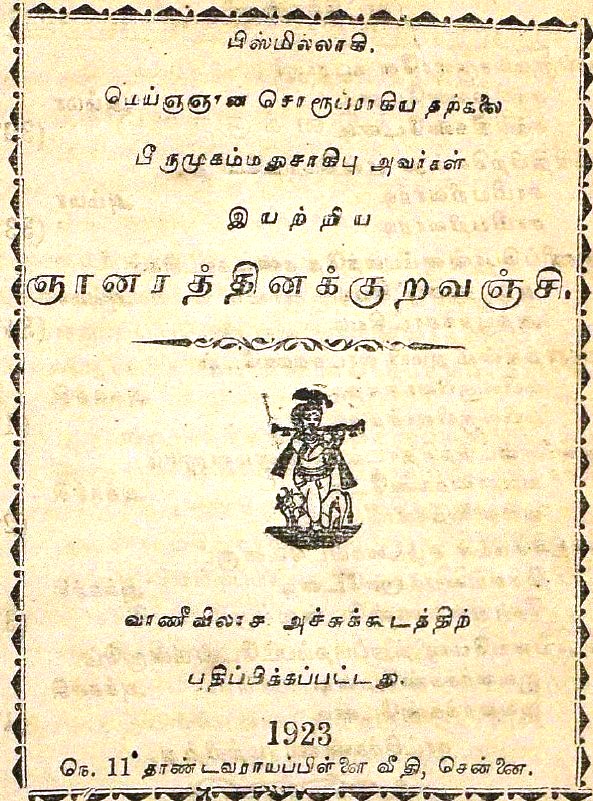 பிஸ்மில்லாகி.
மெய்ஞ்ஞான சொரூபராகிய தற்கலை
பீருமுகம்மதுசாகிபு அவர்கள்
இயற்றிய
ஞானரத்தினக்குறவஞ்சி.
வாணீவிலாச அச்சுக்கூடத்திற்
பதிப்பிக்கப்பட்டது.
1923
நெ. 11 தாண்டவராயப்பிள்ளை வீதி, சென்னை.